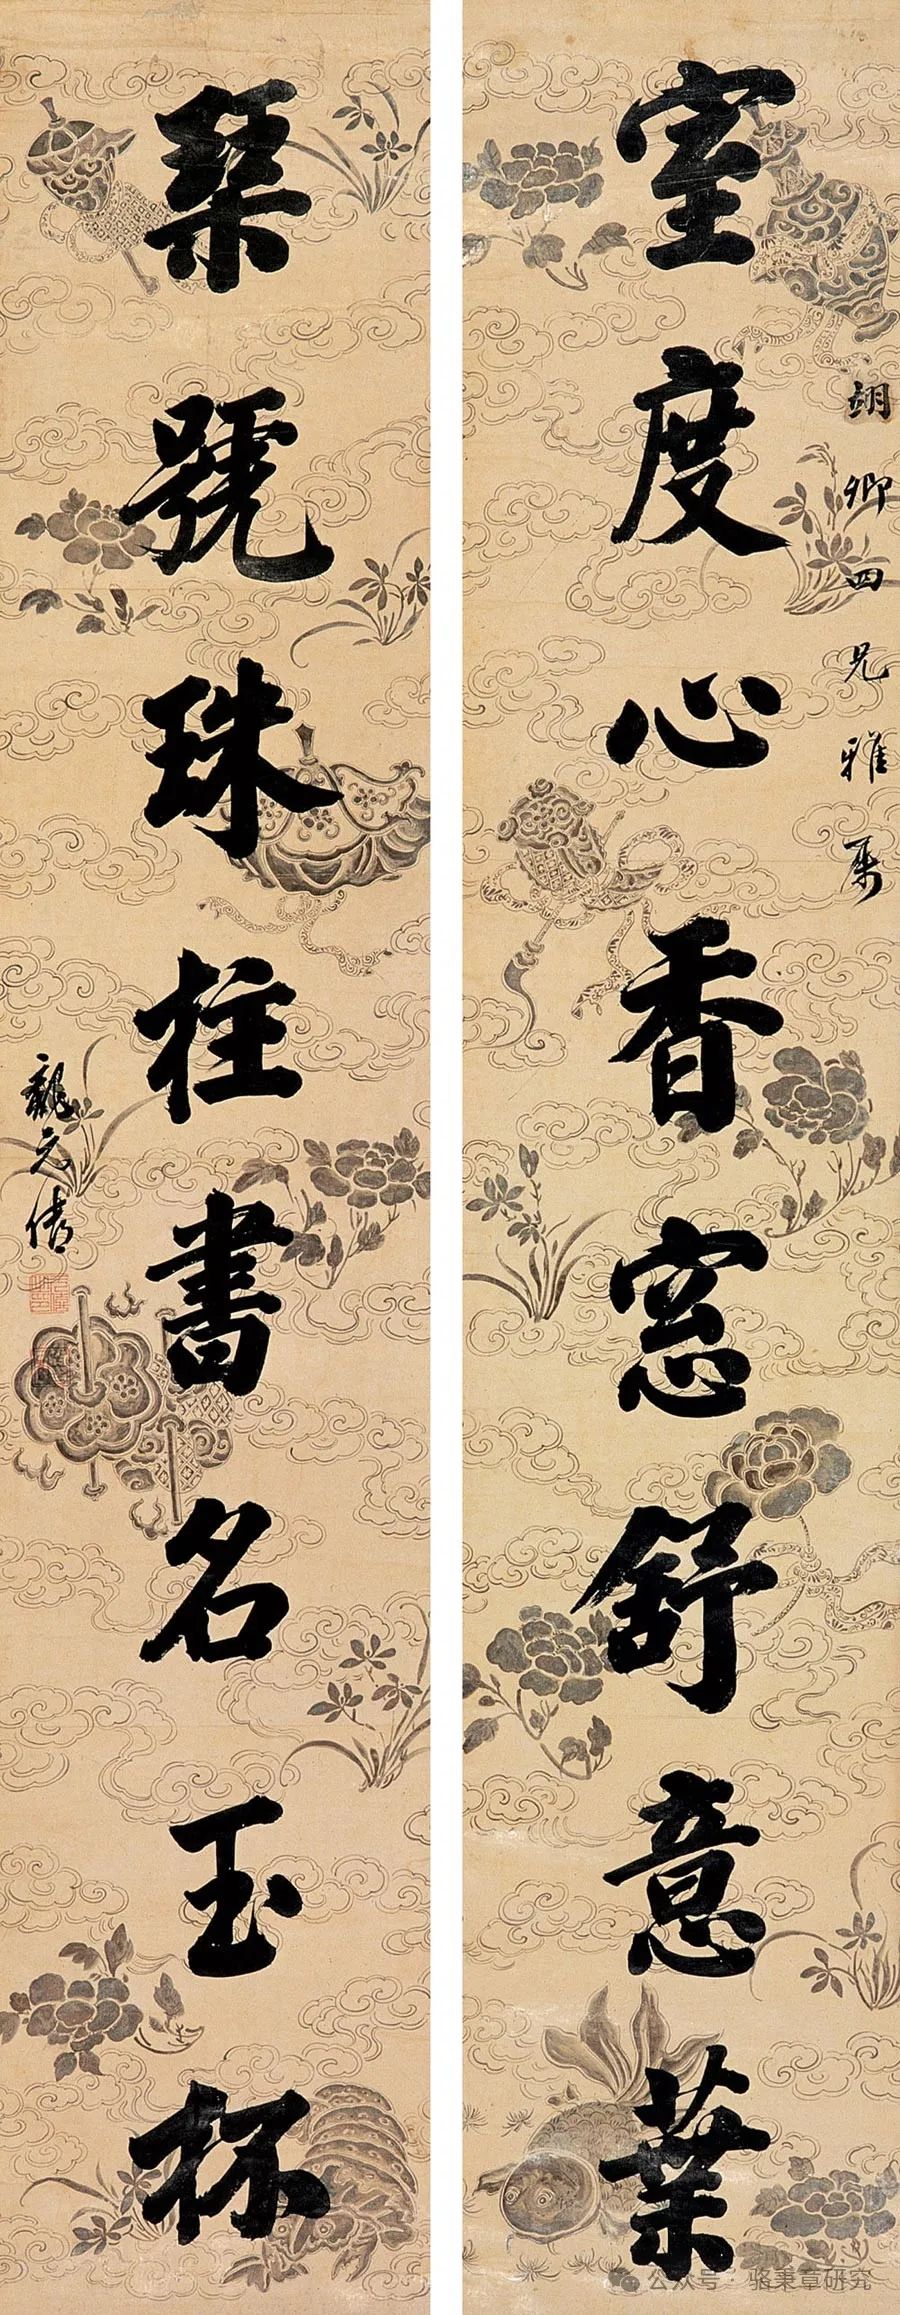 翊卿四兄雅属
室度心香窓舒意葉
琹號珠柱書名玉杯
戴元倩
公众号·骆秉章研究